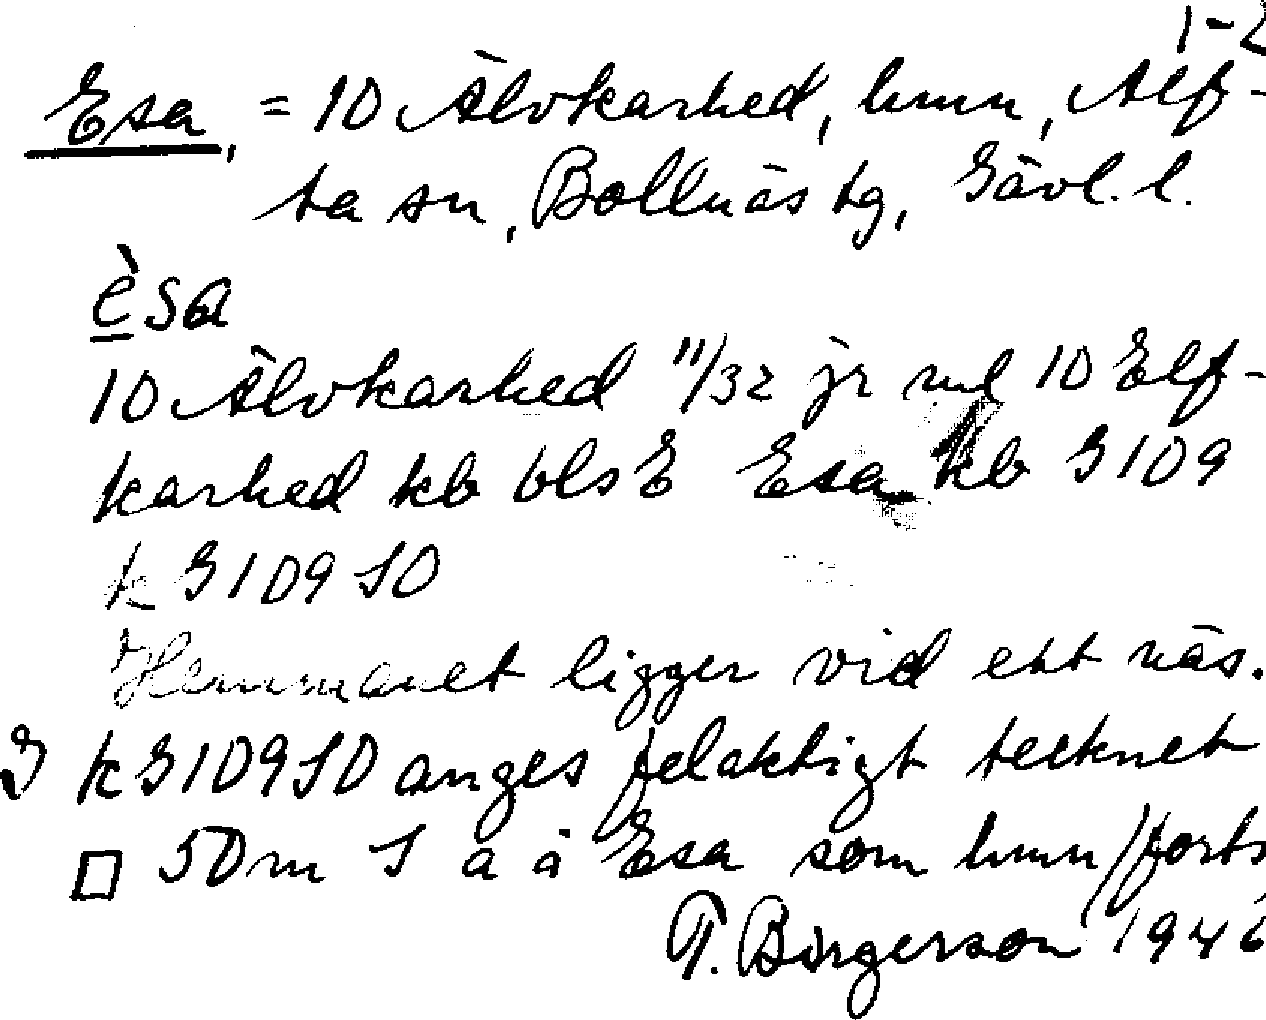 1-2
Esa, = 10 Älvkarhed, hmn, Alf-
ta sn, Bollnäs tg, Gävl. l.
èsa
10 Älvkarhed 11/32 jr ml 10 Elf-
karhed kb bls E Esa kb G 109
k G 109 SO
Hemmanet ligger vid ett näs.
I k G 109 SO anges felaktigt tecknet
□ 50 m S a i Esa som hmn /forts
T. Birgerson 1946